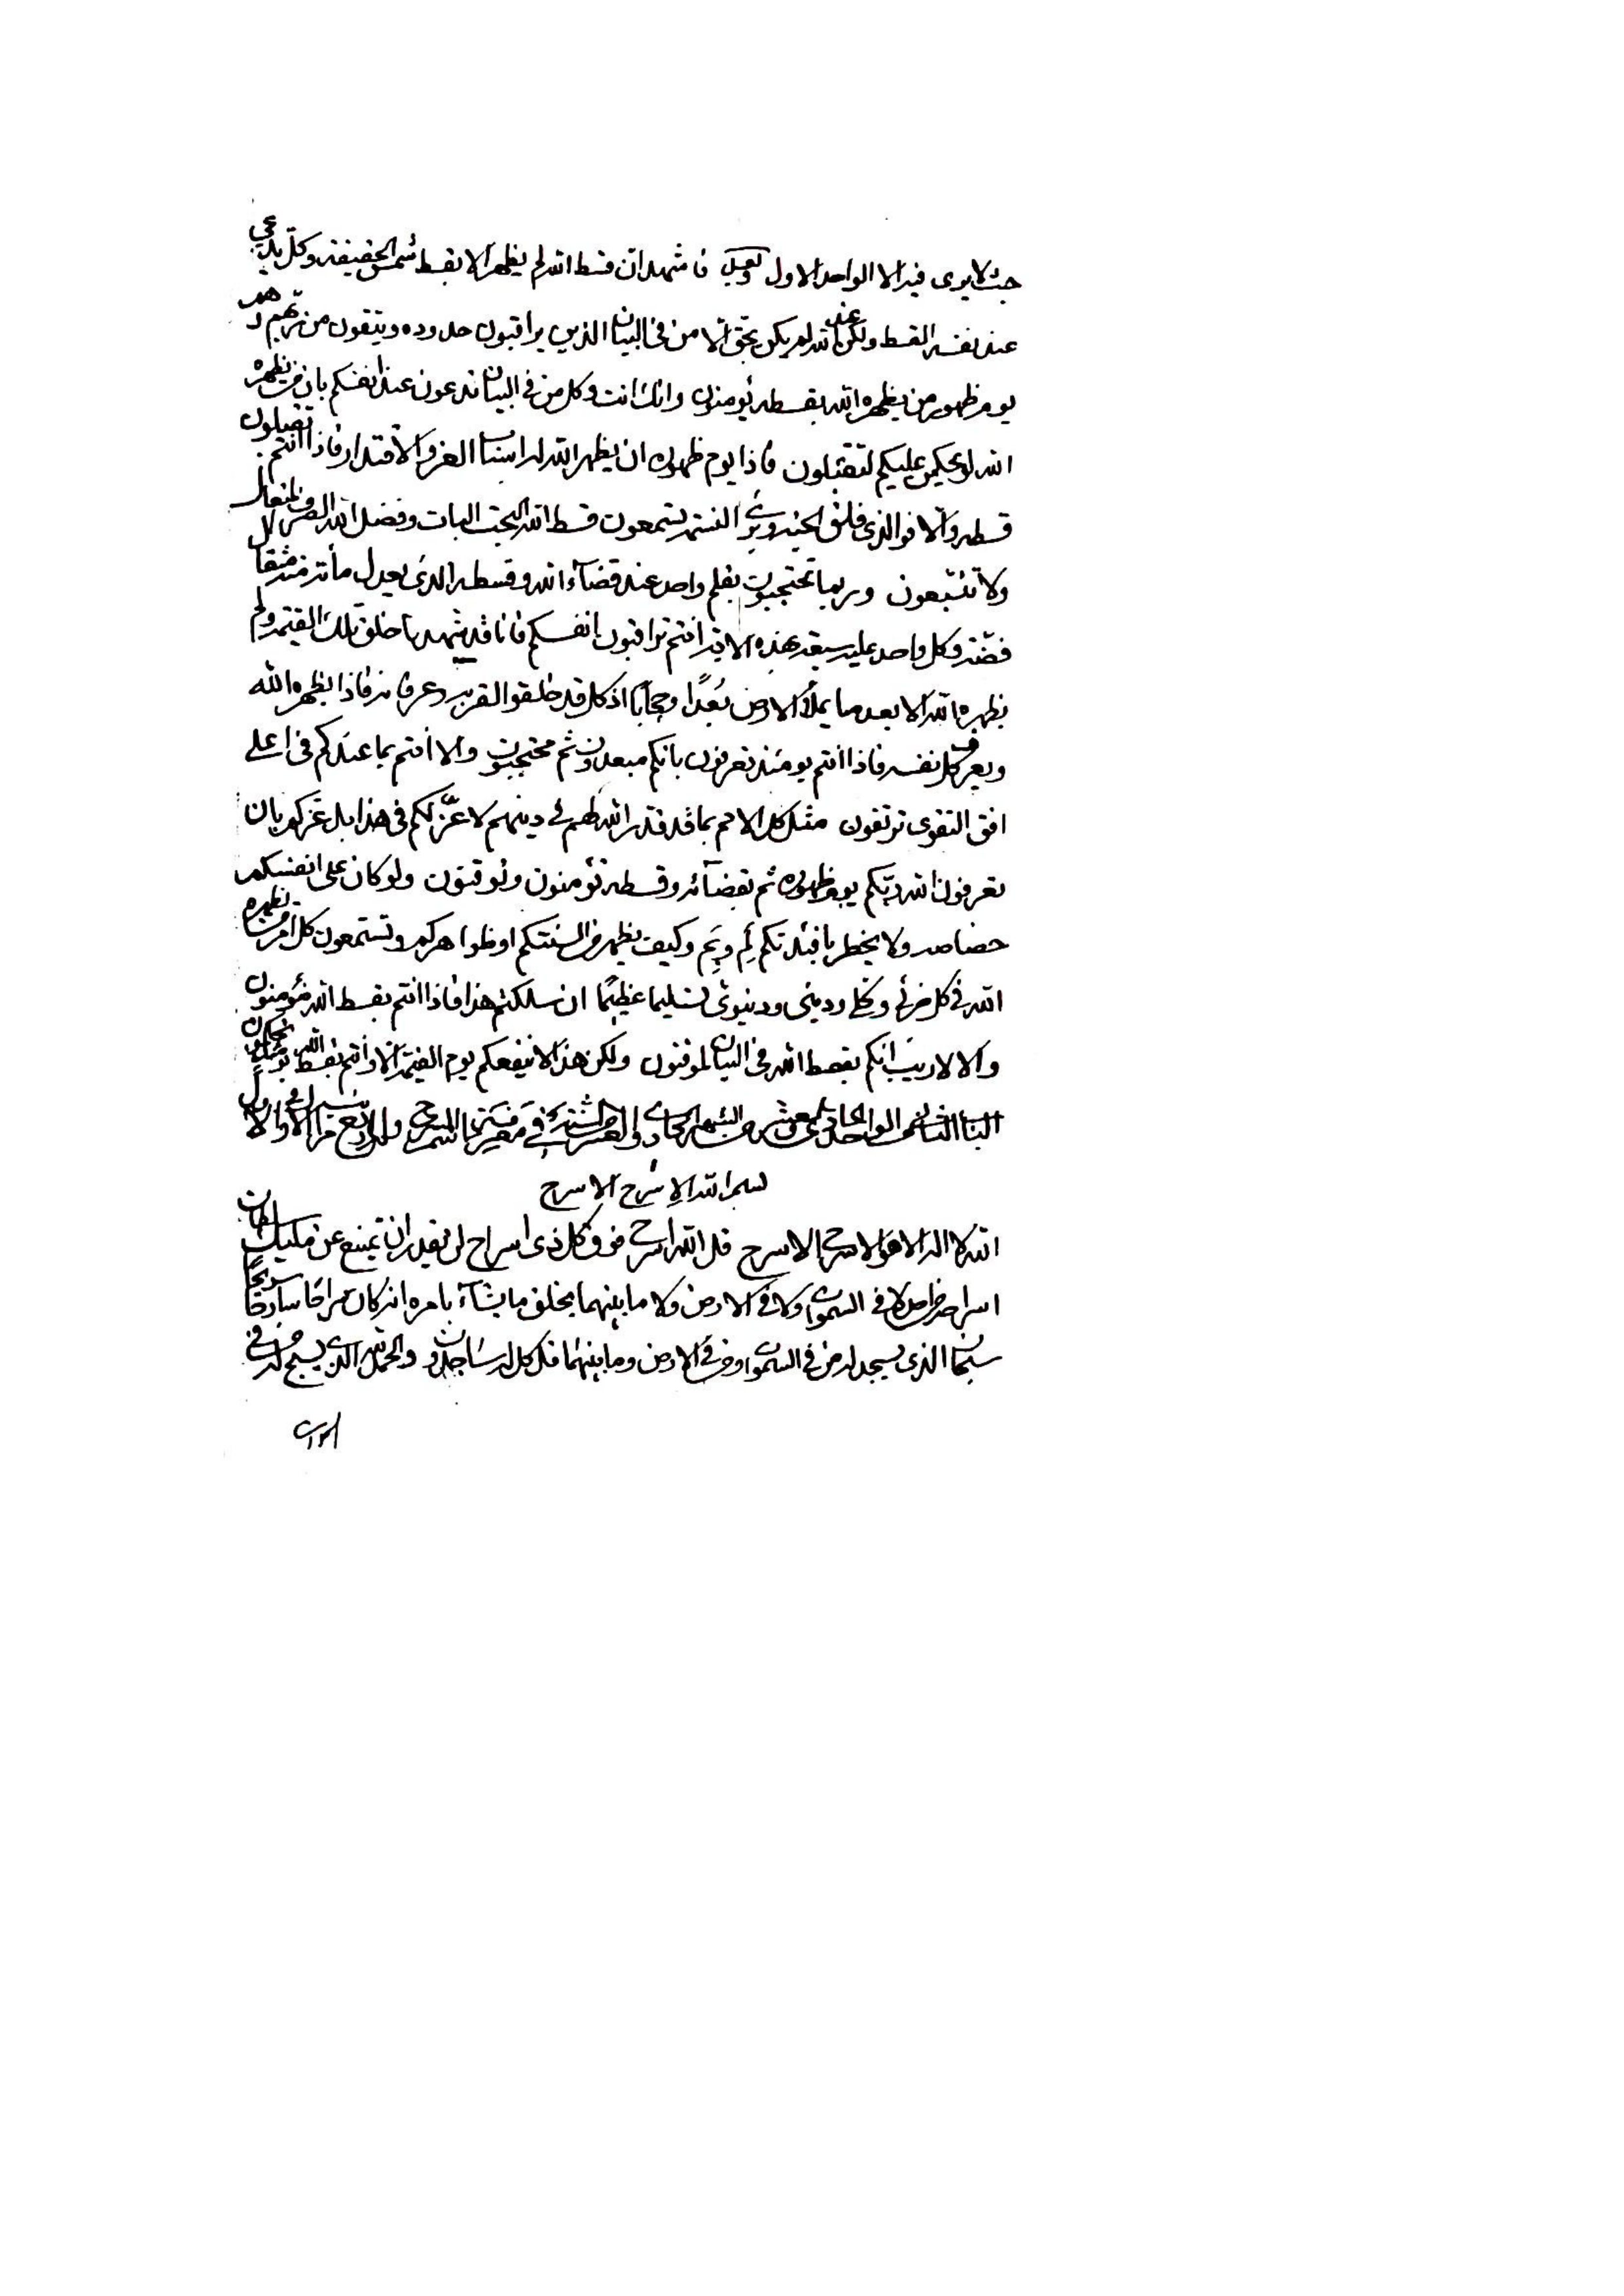 حيث لا يرى فيه الا الواحد الاول وبعد فاشهد ان قسط الله لم يظهر الا بقسط شمس الحقيقة وكل يدعي
عند نفسه القسط ولكن عند الله لم يكن بحق الا من في البيان الذين يراقبون حدوده ويتقون من ربهم وهم
يوم ظهور من يظهره الله بقسطه يؤمنون وانك انت وكل من في البيان تدعون عند انفسكم بان من يظهره
الله لو يحكمن عليكم لتقبلون فاذا يوم ظهوره ان يظهر الله له اسباب العز والاقتدار فاذا انتم تقبلون
قسطه والا فوالذي فلق الحبة وبرئ النسمة لتسمعون قسط الله البحت البات وفضل الله الصرف المتعال
ولا تتبعون وربما تحتجبون بقلم واحد عند قضاء الله وقسطه الذي يعدل مأته مثقال
فضة وكل واحد عليه سبعة هذه الاية انتم تراقبون انفسكم فانا قد نشهد ما خلق تلك القيمة ولم
يظهره الله الا بعد ما يملأ الارض بُعدًا وحجابًا اذ كل قد خلقوا لقربه وعرفانه فاذا يظهره الله
ويعرف كل نفسه فاذا انتم يومئذ تعرفون بانكم مبعدون ثم محتجبون والا انتم بما عندكم في اعلى
افق التقوى ترتقون مثل كل الامم بما قد قدر الله لهم في دينهم لا عز لكم في هذا بل عزكم بان
تعرفون الله ربكم يوم ظهوره ثم بقضائه وقسطه تؤمنون وتوقنون ولو كان على انفسكم
ولا يخطر بافئدتكم لم وبم وكيف يظهر من السنتكم او ظواهركم وتستمعون كل امر من يظهره
الله في كل جزئي وكلي وديني ودنيوي تسليما عظيما ان سلكتم هذا فاذا انتم بقسط الله مؤمنون
والا لا ريب انكم بقسط الله في البيان لموقنون ولكن هذا لا ينفعكم يوم القيمة الا وانتم بقسط الله
الباب الثاني من الواحد الحادي عشر من الشهر الحادي والعشر من السنة في معرفة اسم السرح وله اربع مراتب الاول في الاول
بسم الله الاسرح الاسرح
الله لا اله الا هو الاسرح الاسرح قل الله اسرح فوق كل ذي اسراح لن يقدر ان يمتنع عن مليك سلطان
اسراحه من احد لا في السموات ولا في الارض ولا ما بينهما يخلق ما يشاء بامره انه كان سراحا سارحا سريحا
سبحان الذي يسجد له من في السموات ومن في الارض وما بينهما قل كل له ساجدون والحمد لله الذي يسبح له من في
السموات